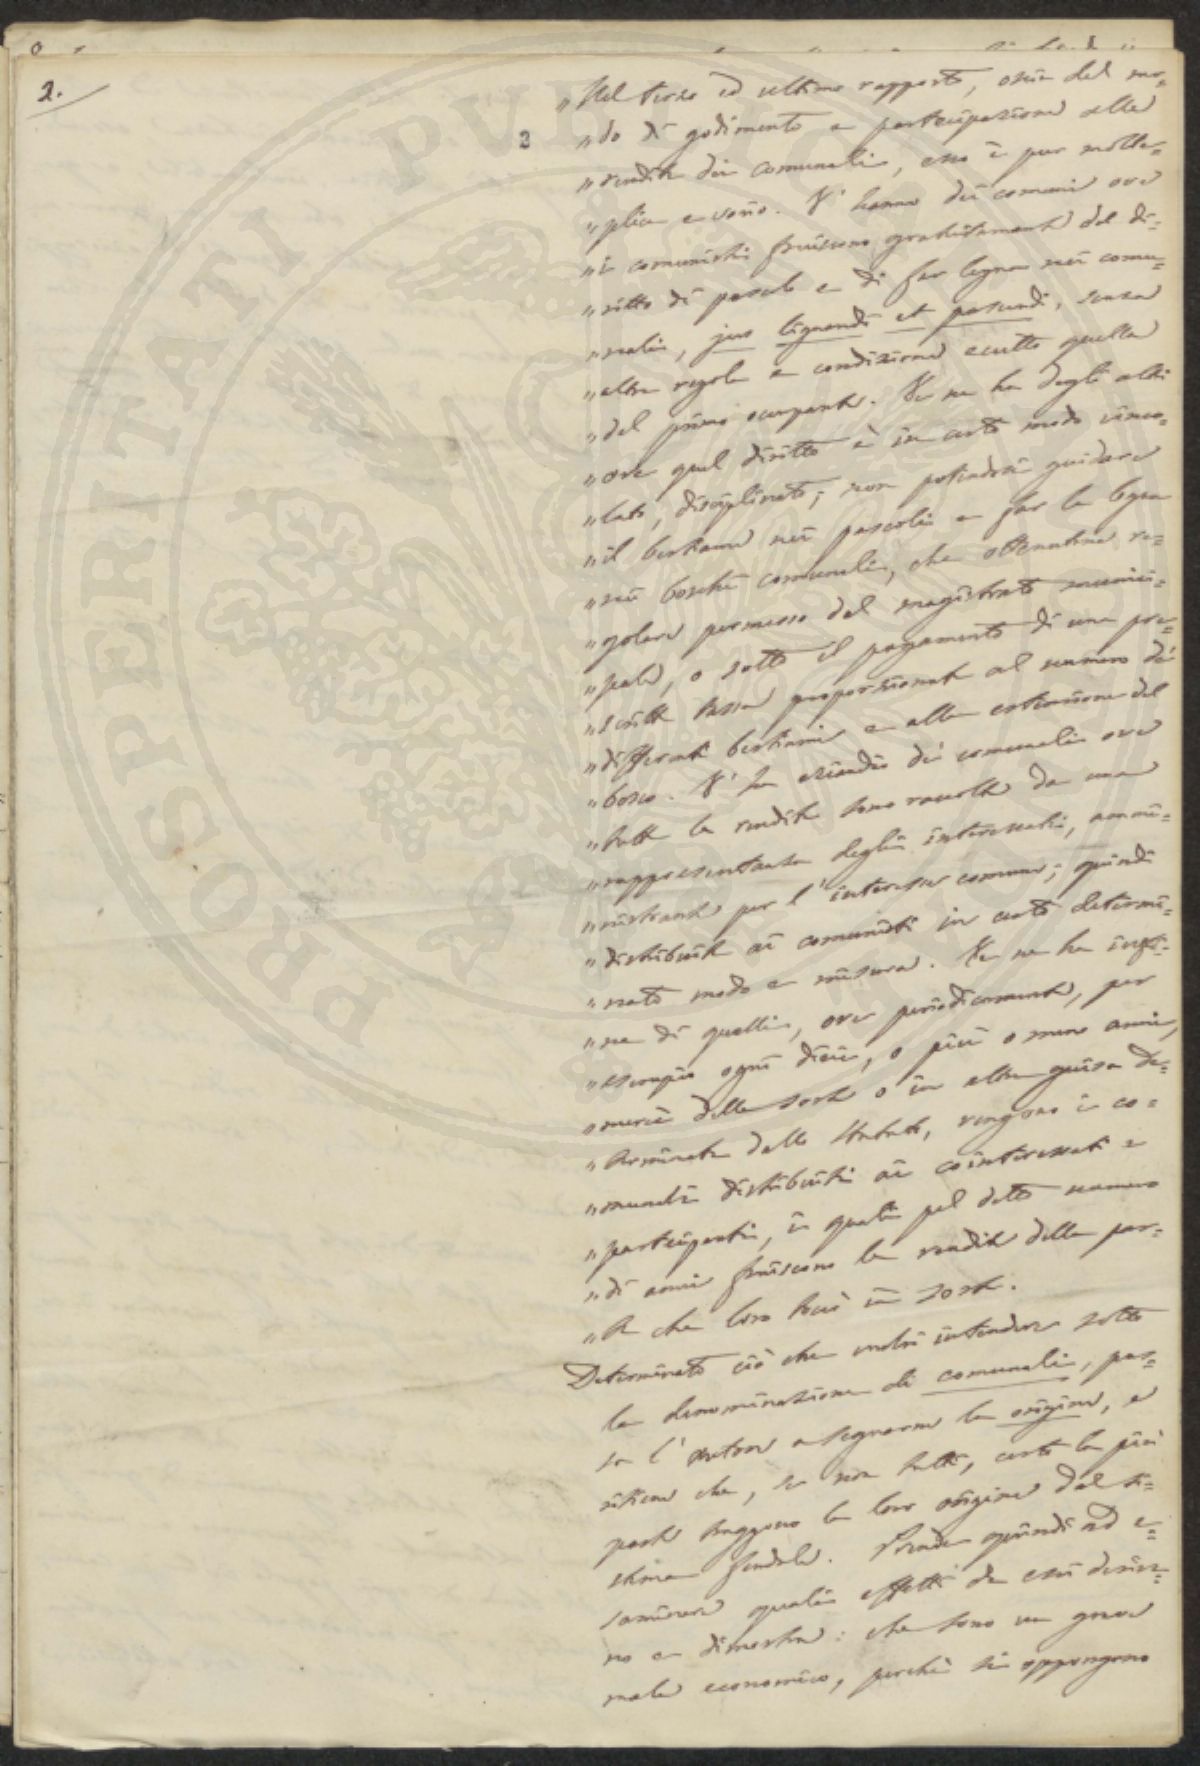 2.
2
„ Nel terzo ed ultimo rapporto, ossia del mo=
„ do di godimento e partecipazione alle
„ rendite dei comunali, esso è pur molte=
„ plice e vario. V' hanno dei comuni ove
„ i comunisti fruiscono gratuitamente del di=
„ ritto di pascolo e di far legna nei comu=
„ nali, jus lignandi et pascendi, senza
„ altre regole e condizioni eccetto quella
„ del primo occupante. Ve ne ha degli altri
„ ove quel diritto è in certo modo vinco=
„ lato, disciplinato; non potendosi guidare
„ il bestiame nei pascoli e far la legna
„ nei boschi comunali, che ottenutone re=
„ golare permesso dal magistrato munici=
„ pale, o sotto il pagamento di una pre=
„ scritta tassa proporzionata al numero dei
„ differenti bestiami e alla estensione del
„ bosco. V' ha eziandio dei comunali ove
„ tutte le rendite sono raccolte da una
„ rappresentanza degli interessati, ammi=
„ nistrante per l' interesse comune; quindi
„ distribuite ai comunisti in certo determi=
„ nato modo e misura. Ve ne ha infi=
„ ne di quelli, ove periodicamente, per
„ esempio ogni dieci, o più o meno anni,
„ mercè della sorte o in altra guisa de=
„ terminata dallo Statuto, vengono i co=
„ munali distribuiti ai cointeressati e
„ partecipanti, i quali pel detto numero
„ di anni fruiscono le rendite della par=
„ te che loro toccò in sorte.
Determinato ciò che vuolsi intendere sotto
la denominazione di comunali, pas=
sa l' autore a segnarne la origine, e
ritiene che, se non tutti, certo la più
parte traggono la loro origine dal si=
stema feudale. Prende quindi ad e=
saminare quali effetti da essi deriva=
no e dimostra: che sono un grave
male economico, perchè si oppongono